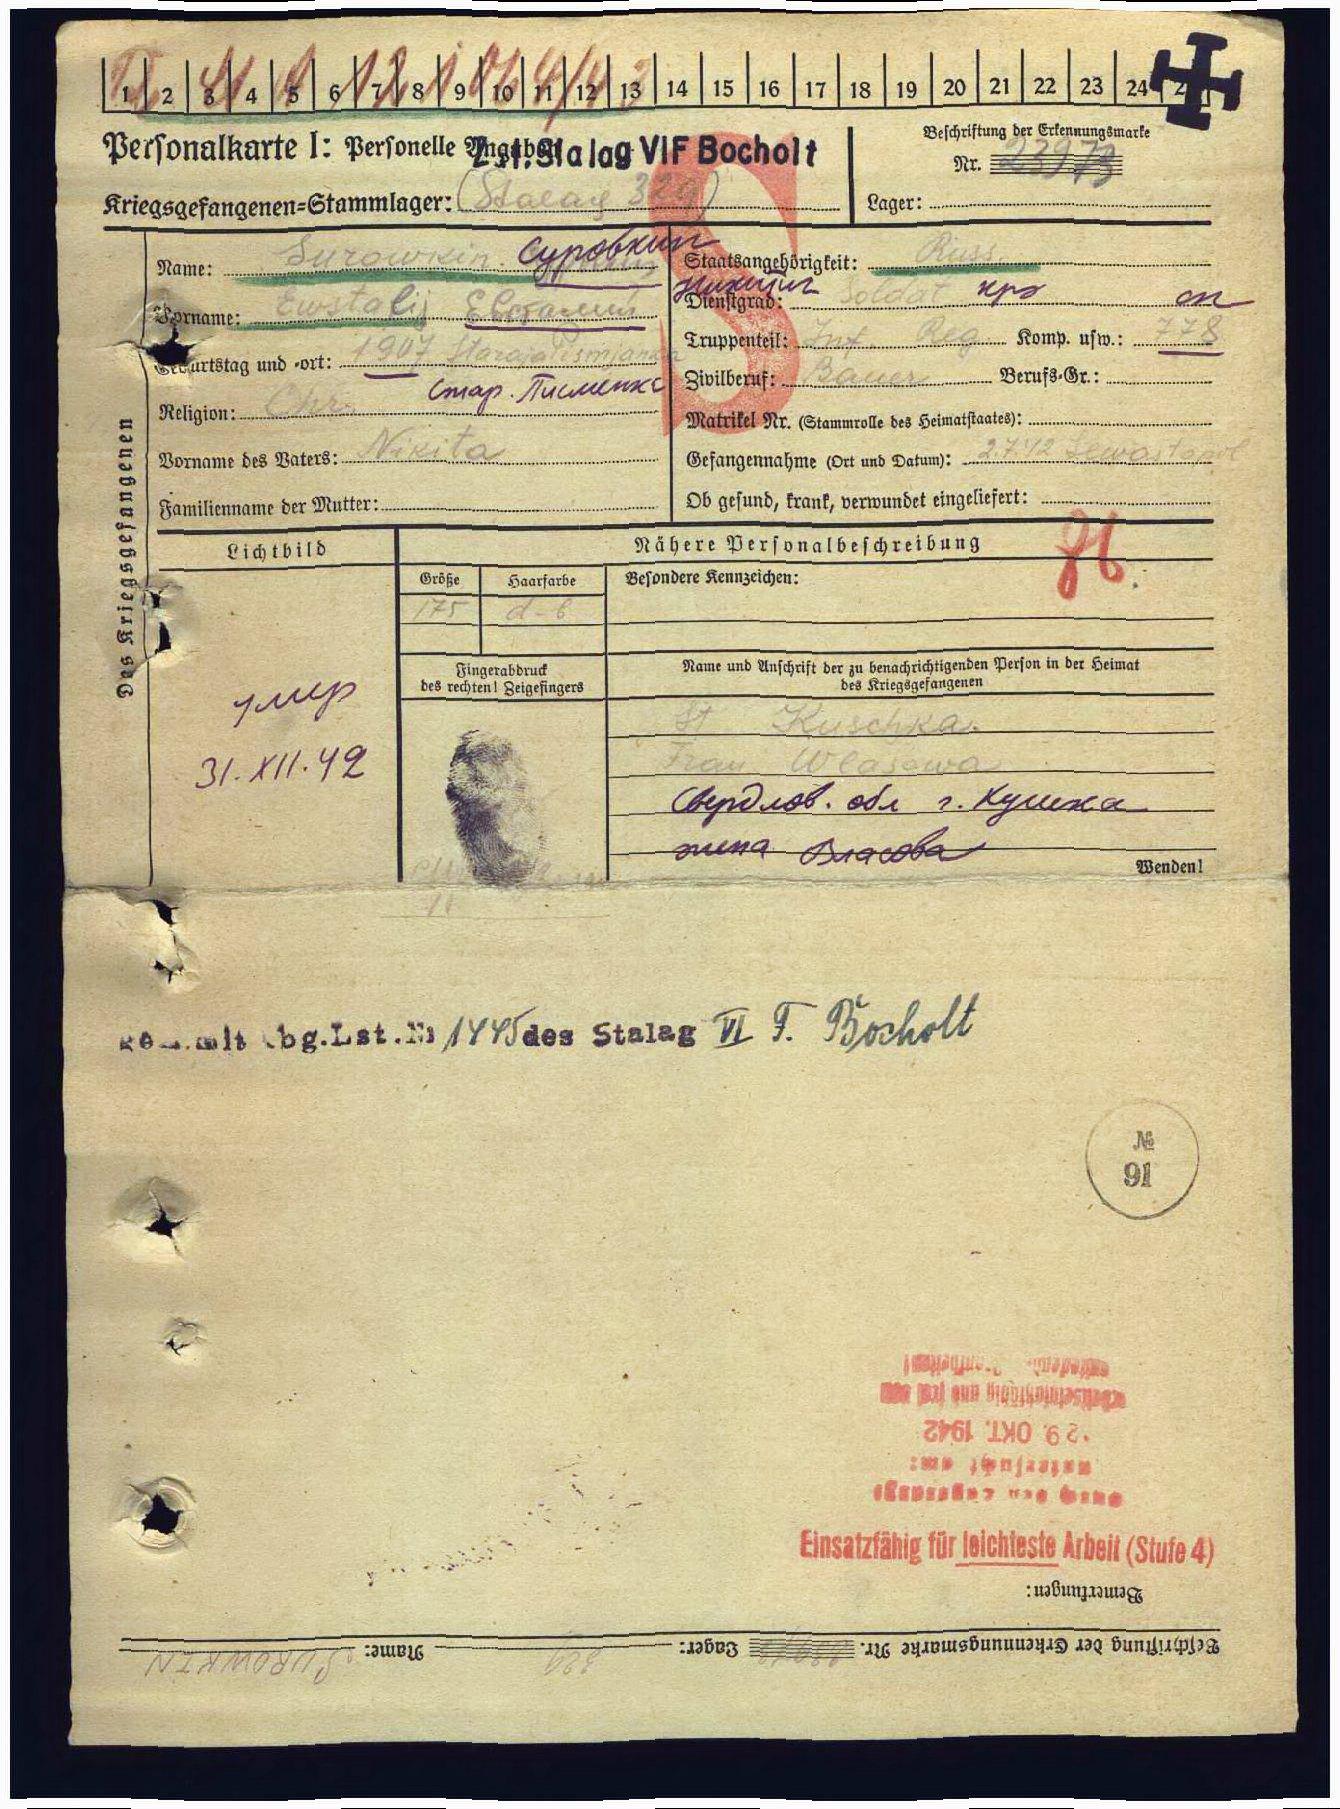 1 2 3 4 5 6 7 8 9 10 11 12 13 14 15 16 17 18 19 20 21 22 23 24
Personalkarte I: Personelle Angaben
Stalag VI F Bocholt
Beschriftung der Erkennungsmarke
Nr. 23973
Kriegsgefangenen-Stammlager: (Stalag 329)
Lager:
Des Kriegsgefangenen
Name: Surowkin Суровкин
Vorname: Ewstalij Евсталий
Geburtstag und -ort: 1907 Starajapismjanka
Стар. Писменка
Religion: Chr.
Vorname des Vaters: Nikita
Familienname der Mutter:
Staatsangehörigkeit: Russ.
Никит
Dienstgrad: Soldat кр
Truppenteil: Inf. Reg Komp. usw.: 778
Zivilberuf: Bauer Berufs-Gr.:
Matrikel Nr. (Stammrolle des Heimatstaates):
Gefangennahme (Ort und Datum): 2.7.42 Sewastopol
Ob gesund, krank, verwundet eingeliefert:
Lichtbild
Nähere Personalbeschreibung
Größe
175
Haarfarbe
d-b
Besondere Kennzeichen:
Fingerabdruck
des rechten! Zeigefingers
Name und Anschrift der zu benachrichtigenden Person in der Heimat
des Kriegsgefangenen
St Kuschka
Frau Wlasowa
Свердлов. обл г. Кушка
жена Власова
умер
31.XII.42
Wenden!
mit Abg.Lst.Nr 1445 des Stalag VI F. Bocholt
№
91
29. OKT. 1942
untersucht am:
Einsatzfähig für leichteste Arbeit (Stufe 4)
Bemerkungen:
Beschriftung der Erkennungsmarke Nr. Lager: 329 Name: SUROWKIN